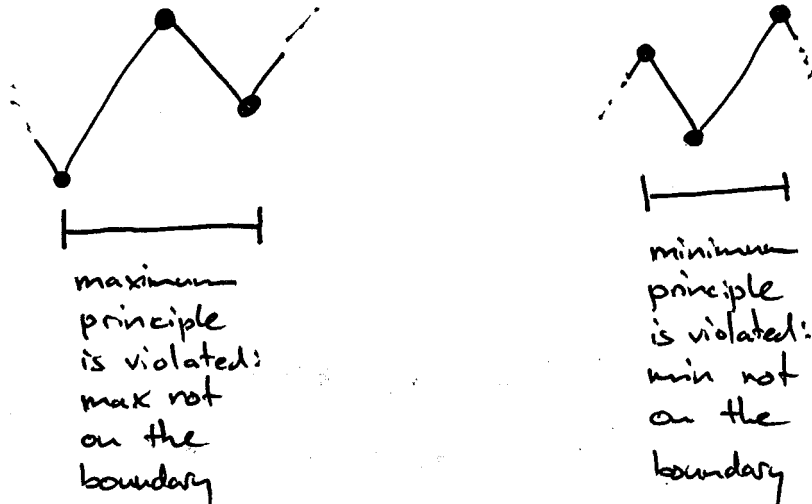 maximum
principle
is violated:
max not
on the
boundary
minimum
principle
is violated:
min not
on the
boundary